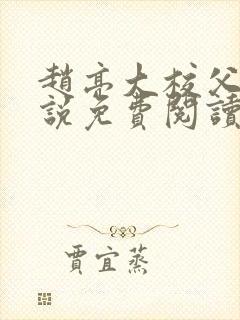 趙亮大校父
說免費閱讀
賈宜蒸